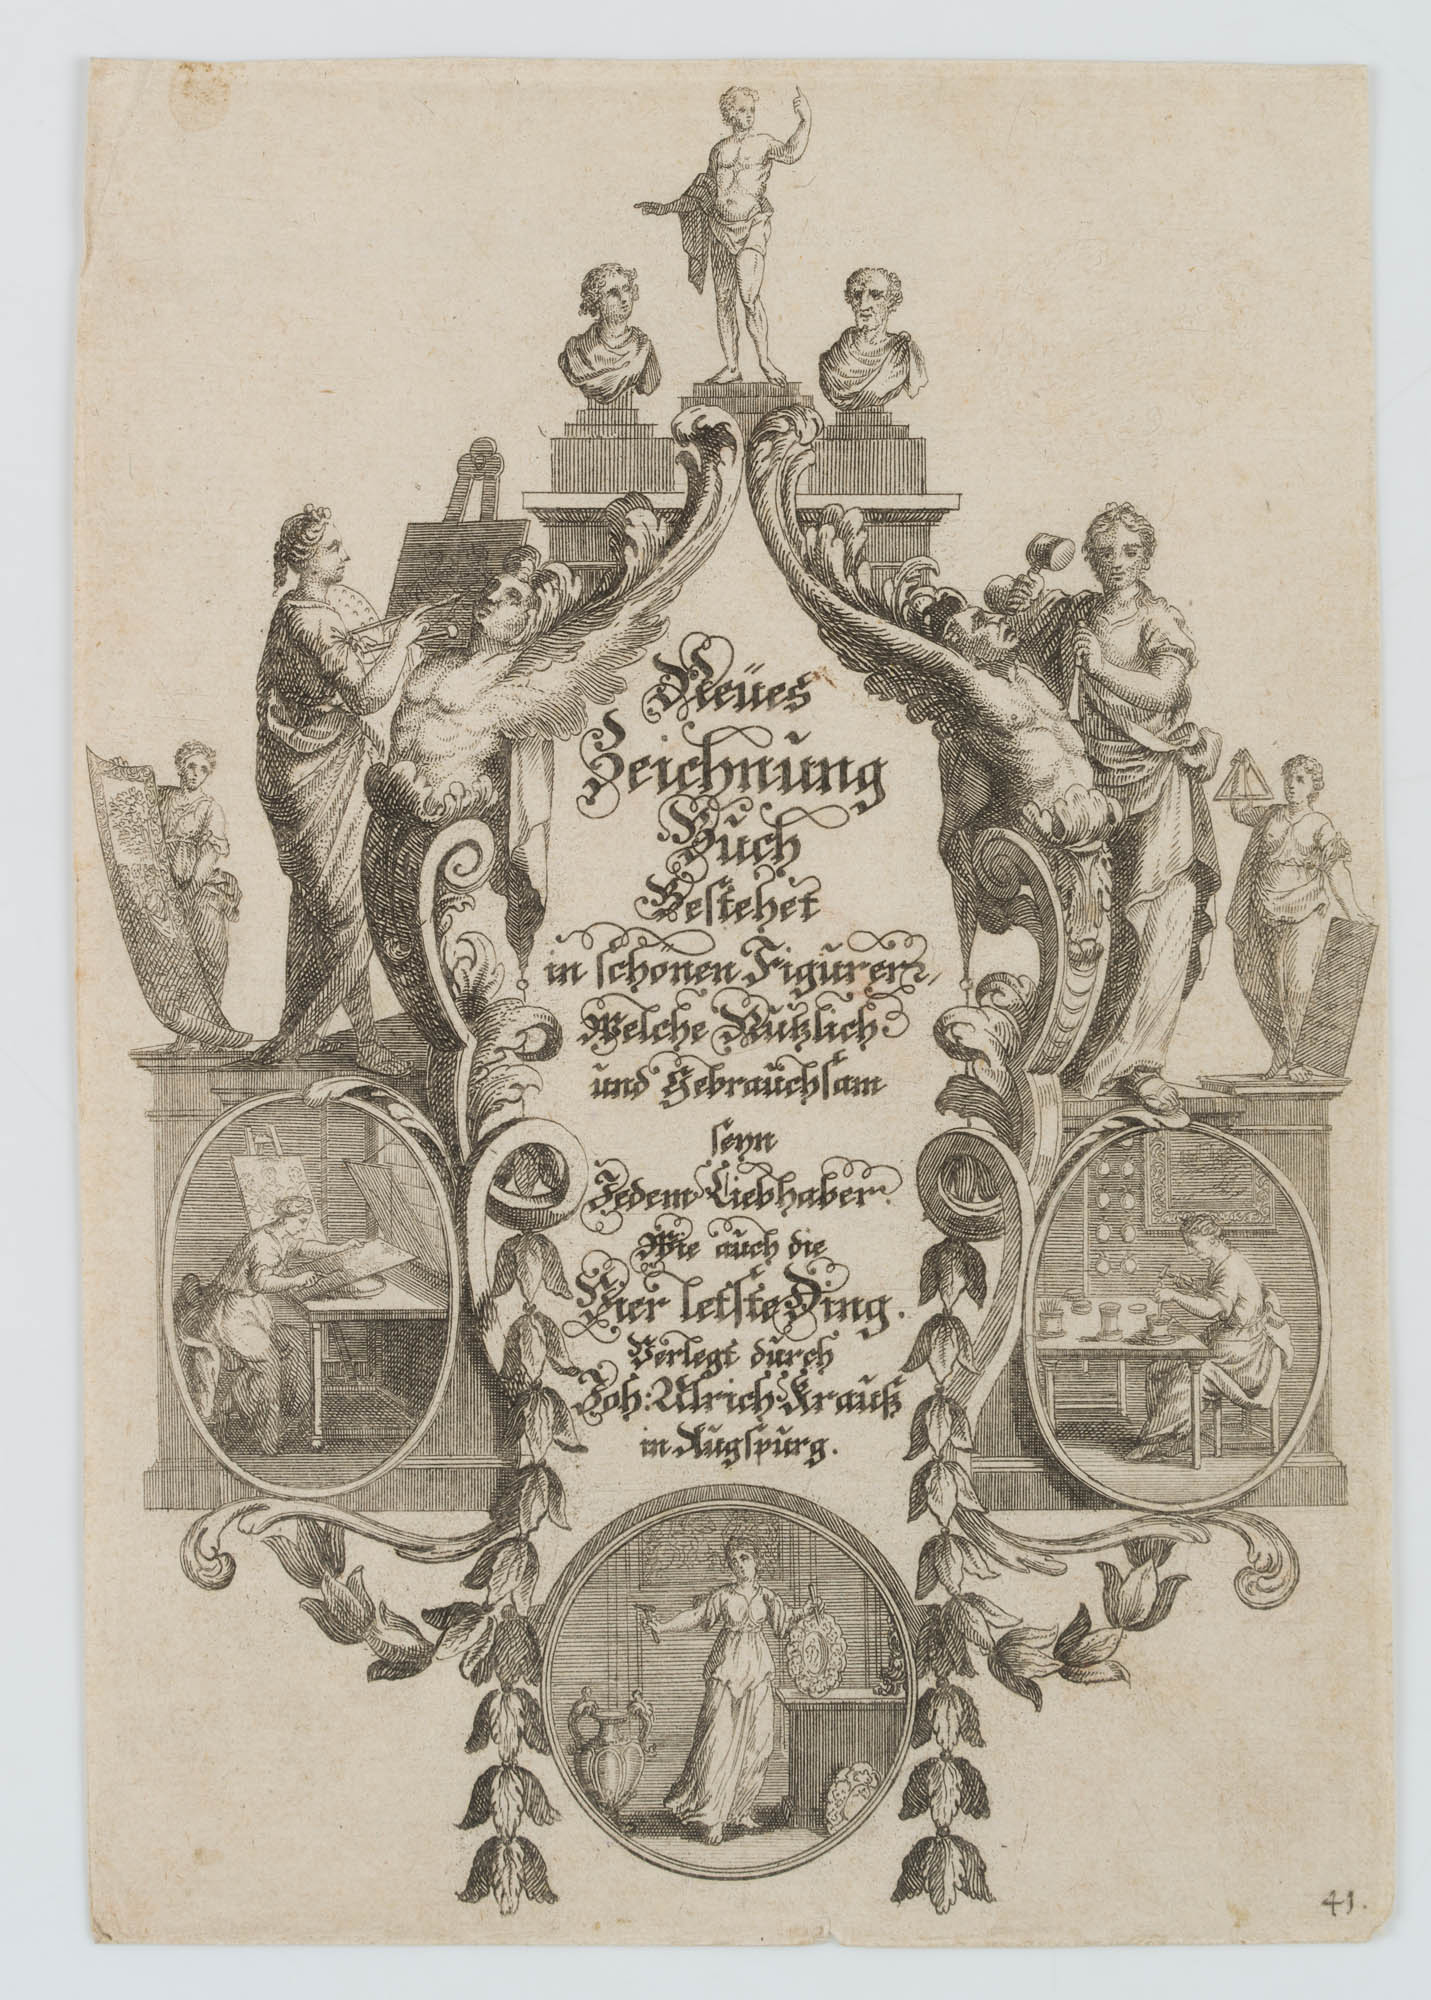 Neües
Zeichnüng
Büch
Bestehet
in schönen Figüren,
Welche Nützlich
und Gebraüchsam
seyn
Jedem Liebhaber.
Wie aüch die
Vier letste Ding.
Verlegt dürch
Joh: Ulrich Kraüß
in Augspürg.
41.